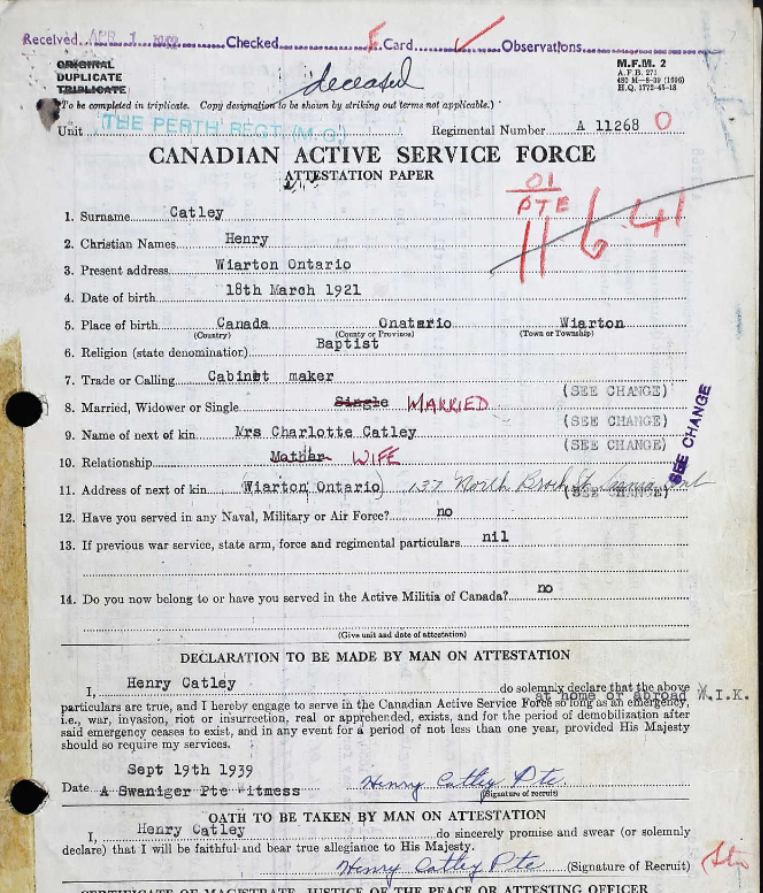 Received APR 1 Checked Card Observations
ORIGINAL
DUPLICATE
TRIPLICATE
deceased
M.F.M. 2
A.F.B. 271
H.Q. 1772-45-18
(To be completed in triplicate. Copy designation to be shown by striking out terms not applicable.)
Unit THE PERTH REGT. (M.G.) Regimental Number A 11268 O
CANADIAN ACTIVE SERVICE FORCE
ATTESTATION PAPER
01
PTE
11 6 41
1. Surname Catley
2. Christian Names Henry
3. Present address Wiarton Ontario
4. Date of birth 18th March 1921
5. Place of birth Canada Onatario Wiarton
(Country) (County or Province) (Town or Township)
6. Religion (state denomination) Baptist
7. Trade or Calling Cabinet maker
(SEE CHANGE)
8. Married, Widower or Single Single MARRIED
(SEE CHANGE)
9. Name of next of kin Mrs Charlotte Catley
(SEE CHANGE)
10. Relationship Mother WIFE
SEE CHANGE
11. Address of next of kin (Wiarton Ontario) 137 North Brock St Sarnia Ont (SEE CHANGE)
12. Have you served in any Naval, Military or Air Force? no
13. If previous war service, state arm, force and regimental particulars nil
14. Do you now belong to or have you served in the Active Militia of Canada? no
(Give unit and date of attestation)
DECLARATION TO BE MADE BY MAN ON ATTESTATION
I, Henry Catley do solemnly declare that the above
at home or abroad W.I.K.
particulars are true, and I hereby engage to serve in the Canadian Active Service Force so long as an emergency,
i.e., war, invasion, riot or insurrection, real or apprehended, exists, and for the period of demobilization after
said emergency ceases to exist, and in any event for a period of not less than one year, provided His Majesty
should so require my services.
Sept 19th 1939
Date A Swaniger Pte Witness Henry Catley Pte.
(Signature of recruit)
OATH TO BE TAKEN BY MAN ON ATTESTATION
I, Henry Catley do sincerely promise and swear (or solemnly
declare) that I will be faithful and bear true allegiance to His Majesty.
Henry Catley Pte (Signature of Recruit)
CERTIFICATE OF MAGISTRATE, JUSTICE OF THE PEACE OR ATTESTING OFFICER